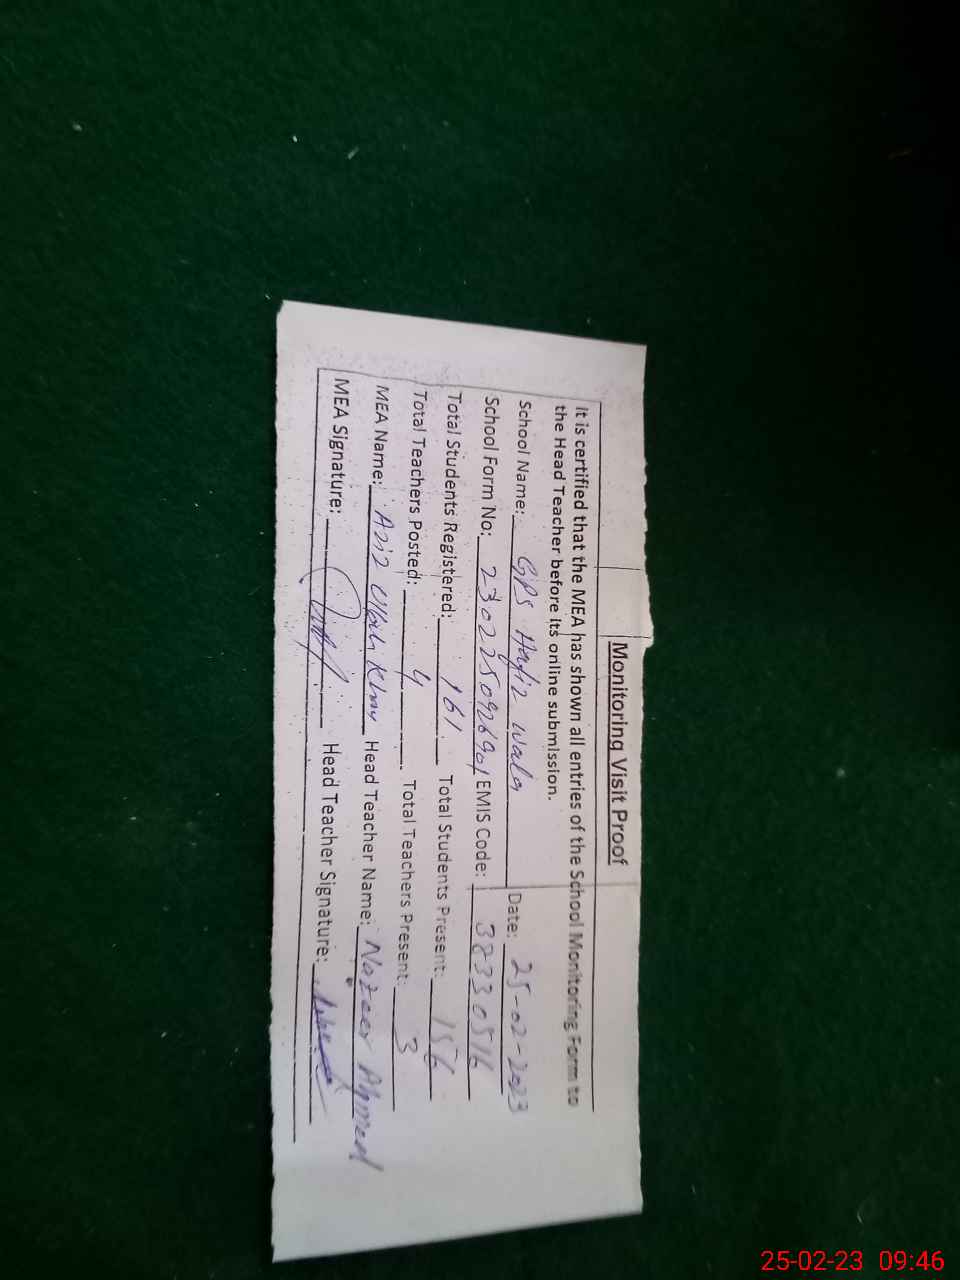 Monitoring Visit Proof
It is certified that the MEA has shown all entries of the School Monitoring Form to
the Head Teacher before its online submission.
School Name: GPS Hafiz wala Date: 25-02-2023
School Form No: 2302250926901 EMIS Code: 38330516
Total Students Registered: 161 Total Students Present: 156
Total Teachers Posted: 4 Total Teachers Present: 3
MEA Name: Aziz Ullah Khan Head Teacher Name: Nazeer Ahmed
MEA Signature: Head Teacher Signature:
25-02-23 09:46